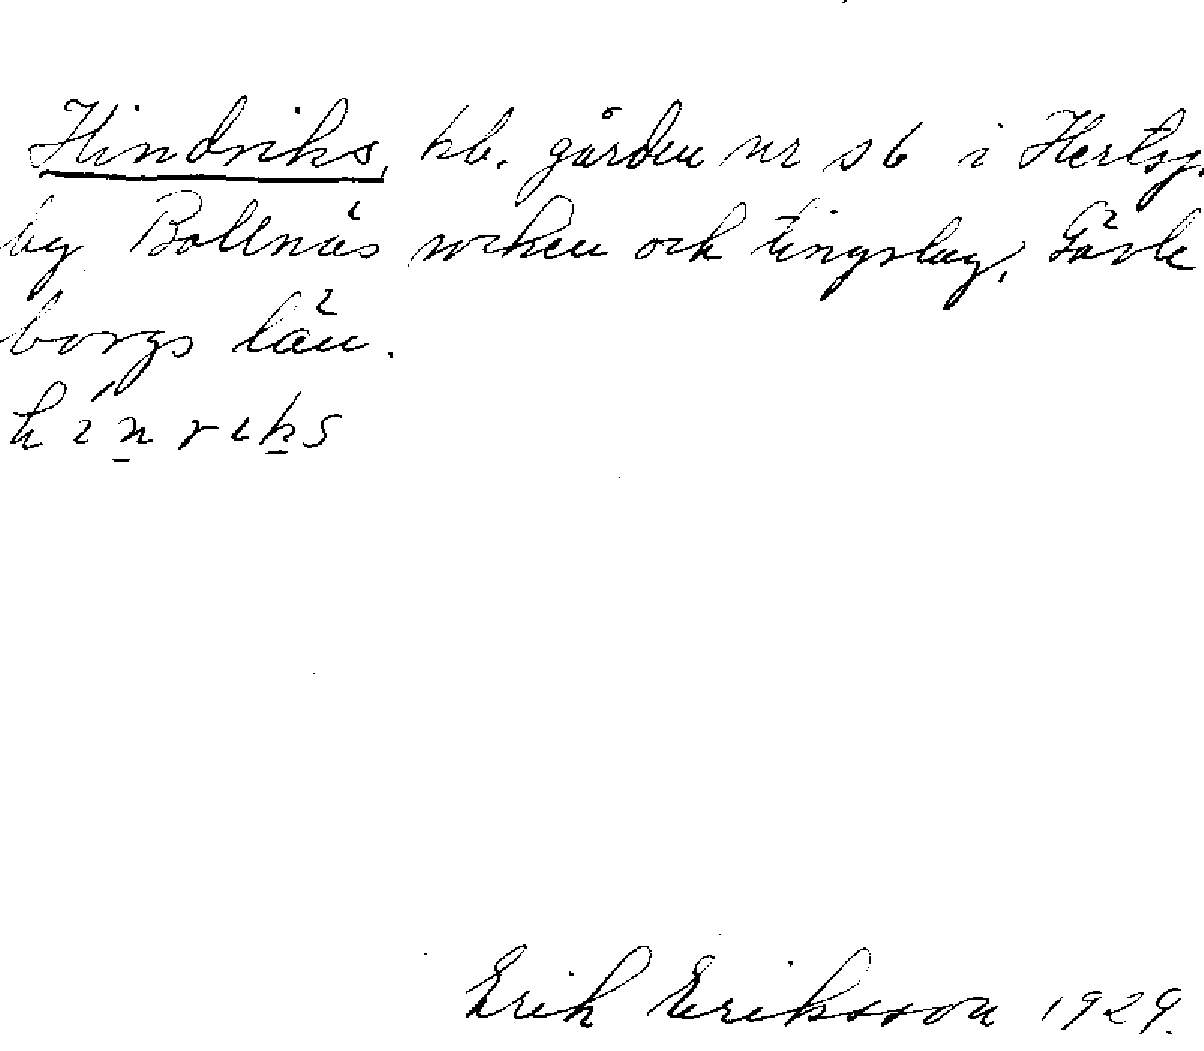 Hindriks, hb. gården nr 56 i Hertsj
by Bollnäs socken och tingslag, Gävle
borgs län.
hinriks
Erik Eriksson 1929.